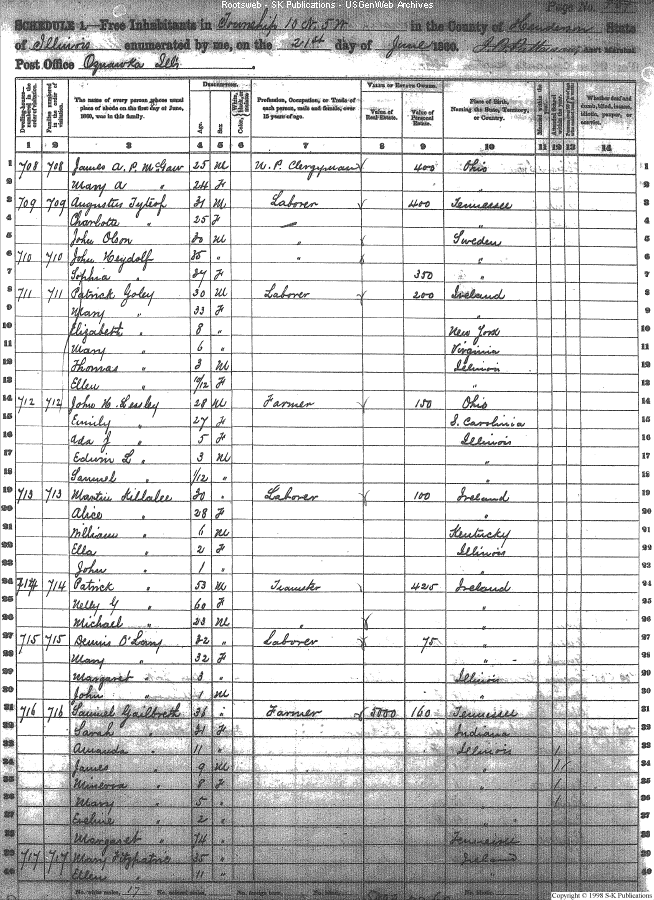 Rootsweb - SK Publications - USGenWeb Archives
Page No.
SCHEDULE 1.—Free Inhabitants in Township 10 N. 5 W in the County of Henderson State
of Illinois enumerated by me, on the 21st day of June 1860. Ass't Marshal
Post Office Oquawka Ills
DESCRIPTION. VALUE OF ESTATE OWNED.
The name of every person whose usual place of abode on the first day of June, 1860, was in this family. Age. Sex. Profession, Occupation, or Trade of each person, male and female, over 15 years of age. Value of Real Estate. Value of Personal Estate. Place of Birth, Naming the State, Territory, or Country. Whether deaf and dumb, blind, insane, idiotic, pauper, or convict.
1 2 3 4 5 6 7 8 9 10 11 12 13 14
1 708 708 James A. P. McGaw 25 M U. P. Clergyman 400 Ohio 1
2 Mary A " 24 F "
3 709 709 Augustus 31 M Laborer 400 Tennessee
4 Charlotte " 25 F "
5 John Olson 30 M " Sweden
6 710 710 John Heydolf 35 " " "
7 Sophia " 37 F 350 "
8 711 711 Patrick Goley 30 M Laborer 200 Ireland
9 Mary " 33 F "
10 Elizabeth " 8 " New York
11 Mary " 6 " Virginia
12 Thomas " 3 M Illinois
13 Ellen " 10/12 F "
14 712 712 John H. Lessley 28 M Farmer 150 Ohio
15 Emily " 27 F S. Carolina
16 Ada J " 5 F Illinois
17 Edwin L " 3 M "
18 Samuel " 1/12 " "
19 713 713 Martin Killalee 30 " Laborer 100 Ireland
20 Alice " 28 F "
21 William " 6 M Kentucky
22 Ella " 2 F Illinois
23 John " 1 " "
24 714 714 Patrick " 53 M Teamster 425 Ireland
25 Nelly G " 60 F "
26 Michael " 23 M " "
27 715 715 Dennis O'Lary 32 " Laborer 75 "
28 Mary " 32 F "
29 Margaret " 3 " Illinois
30 John " 1 M "
31 716 716 Samuel Gailbreth 36 " Farmer 5000 160 Tennessee
32 Sarah " 31 F Indiana
33 Amanda " 11 " Illinois 1
34 James " 9 M " 1
35 Minerva " 8 F " 1
36 Mary " 5 " " 1
37 Eveline " 2 " "
38 Margaret " 74 " Tennessee
39 717 717 Mary Fitzpatric 35 " Ireland
40 Ellen " 11 " "
No. white males, 17
Copyright © 1998 S-K Publications